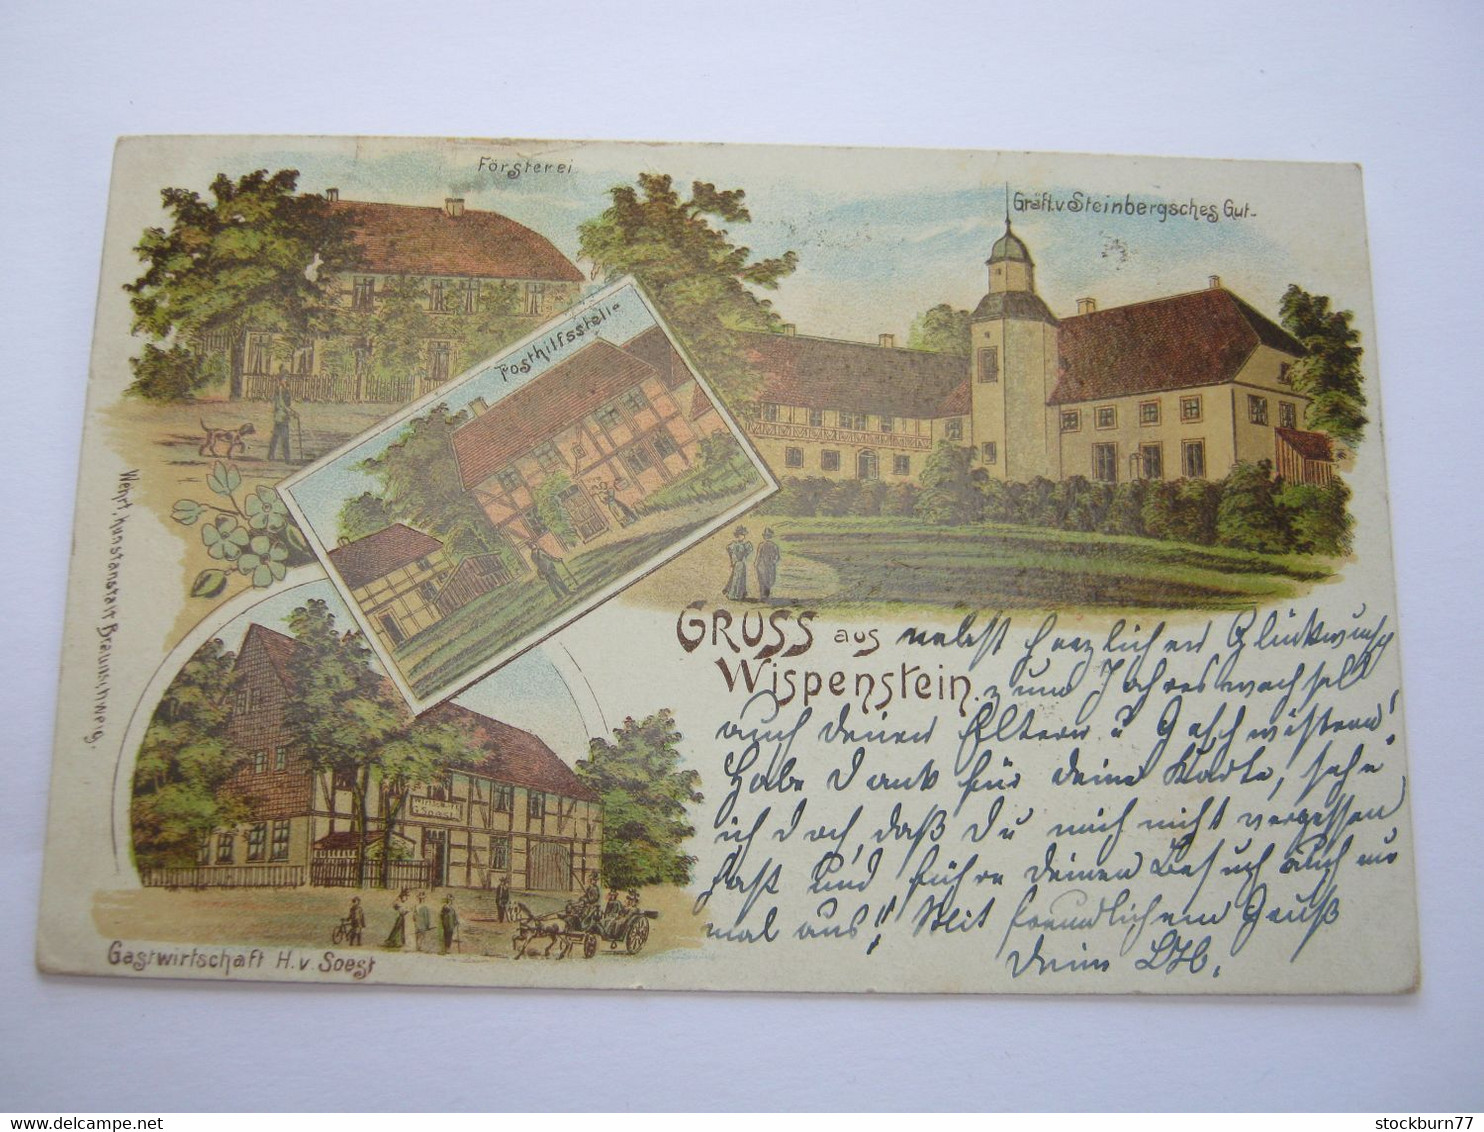 Försterei
Gräfl. v Steinbergsches Gut-
Posthilfsstelle
Wehrt, Kunstanstalt Braunschweig.
Gastwirtschaft H. v. Soest
GRUSS aus
Wispenstein.
nebst herzlichen Glückwunsch
zum Jahreswechsel
auch deinen Eltern u Geschwistern!
Habe Dank für deine Karte, sehe
ich doch, daß Du mich nicht vergessen
hast und führe deinen Besuch auch
mal aus! Mit freundlichem Gruß
Dein
delcampe.net
stockburn77